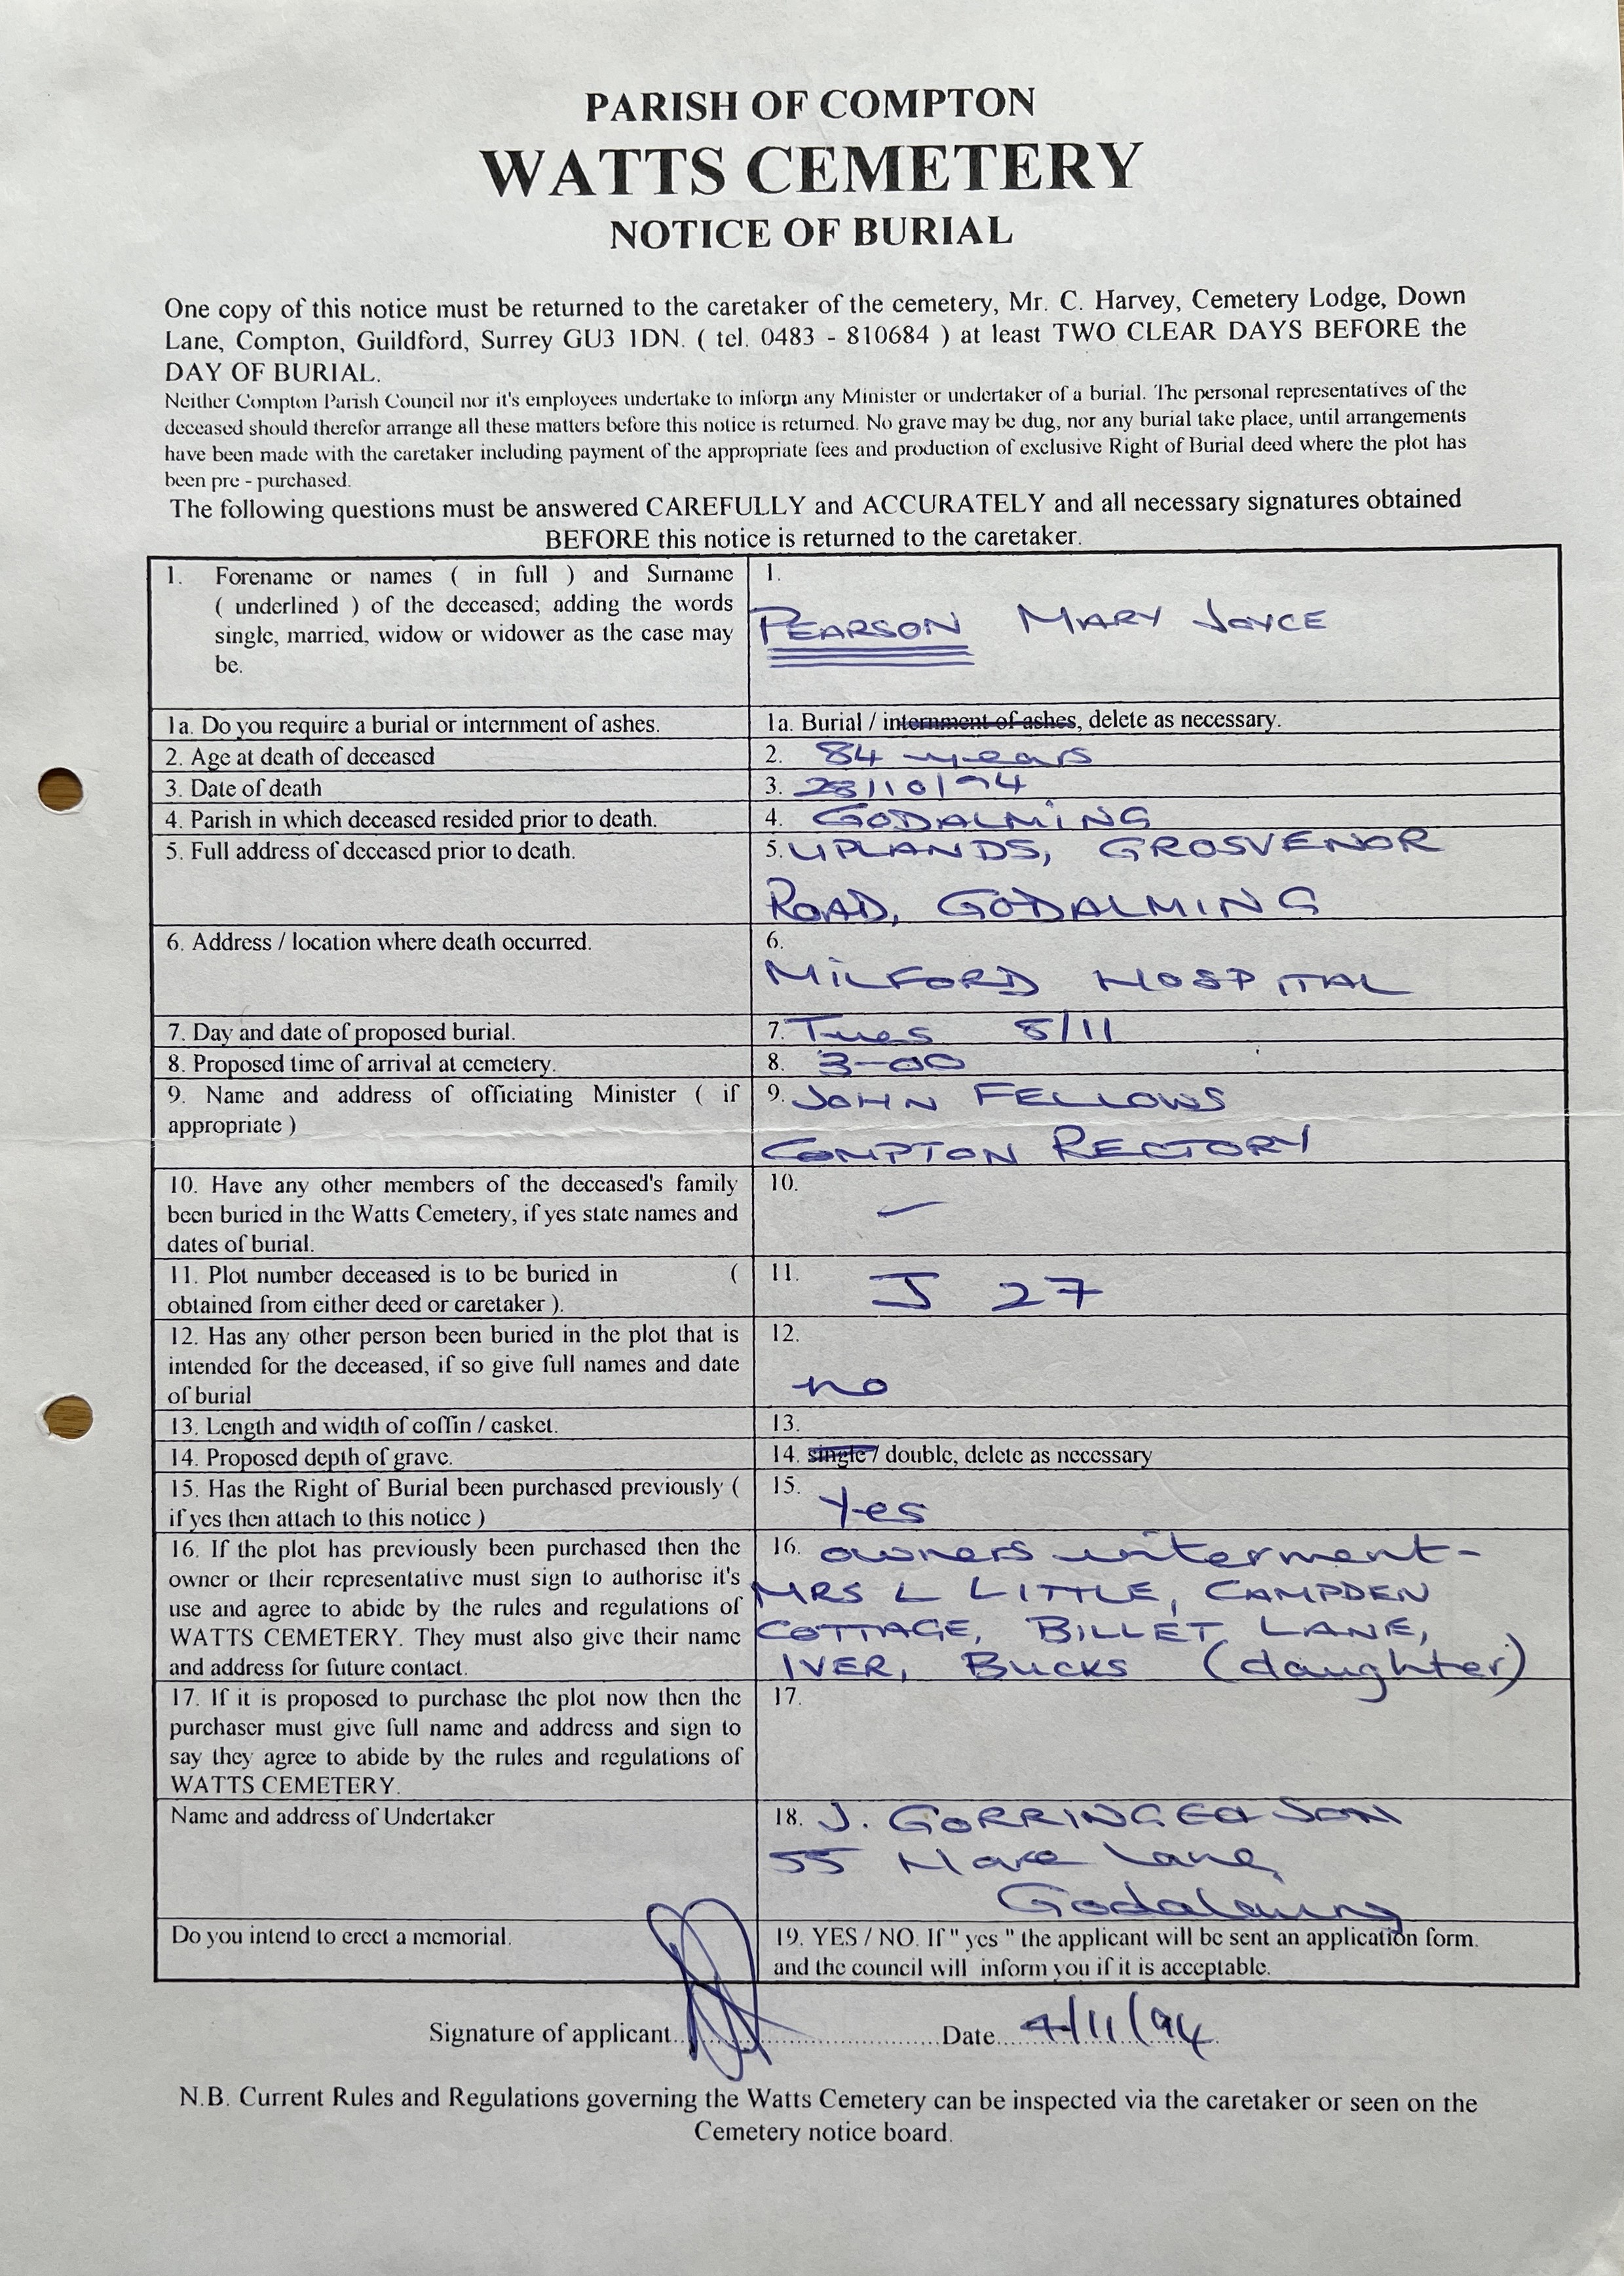 PARISH OF COMPTON
WATTS CEMETERY
NOTICE OF BURIAL
One copy of this notice must be returned to the caretaker of the cemetery, Mr. C. Harvey, Cemetery Lodge, Down
Lane, Compton, Guildford, Surrey GU3 1DN. ( tel. 0483 - 810684 ) at least TWO CLEAR DAYS BEFORE the
DAY OF BURIAL.
Neither Compton Parish Council nor it's employees undertake to inform any Minister or undertaker of a burial. The personal representatives of the
deceased should therefor arrange all these matters before this notice is returned. No grave may be dug, nor any burial take place, until arrangements
have been made with the caretaker including payment of the appropriate fees and production of exclusive Right of Burial deed where the plot has
been pre - purchased.
The following questions must be answered CAREFULLY and ACCURATELY and all necessary signatures obtained
BEFORE this notice is returned to the caretaker.
1. Forename or names ( in full ) and Surname
( underlined ) of the deceased; adding the words
single, married, widow or widower as the case may
be.
1.
PEARSON MARY JOYCE
1a. Do you require a burial or internment of ashes.
1a. Burial / internment of ashes, delete as necessary.
2. Age at death of deceased
2. 84 years
3. Date of death
3. 28/10/94
4. Parish in which deceased resided prior to death.
4. GODALMING
5. Full address of deceased prior to death.
5. UPLANDS, GROSVENOR
ROAD, GODALMING
6. Address / location where death occurred.
6.
MILFORD HOSPITAL
7. Day and date of proposed burial.
7. Tues 8/11
8. Proposed time of arrival at cemetery.
8. 3-00
9. Name and address of officiating Minister ( if
appropriate )
9. JOHN FELLOWS
COMPTON RECTORY
10. Have any other members of the deceased's family
been buried in the Watts Cemetery, if yes state names and
dates of burial.
10.
—
11. Plot number deceased is to be buried in (
obtained from either deed or caretaker ).
11. J 27
12. Has any other person been buried in the plot that is
intended for the deceased, if so give full names and date
of burial
12.
no
13. Length and width of coffin / casket.
13.
14. Proposed depth of grave.
14. single / double, delete as necessary
15. Has the Right of Burial been purchased previously (
if yes then attach to this notice )
15. Yes
16. If the plot has previously been purchased then the
owner or their representative must sign to authorise it's
use and agree to abide by the rules and regulations of
WATTS CEMETERY. They must also give their name
and address for future contact.
16. owners interment-
MRS L LITTLE, CAMPDEN
COTTAGE, BILLET LANE,
IVER, BUCKS (daughter)
17. If it is proposed to purchase the plot now then the
purchaser must give full name and address and sign to
say they agree to abide by the rules and regulations of
WATTS CEMETERY.
17.
Name and address of Undertaker
18. J. GORRINGE & SON
55 Mare Lane,
Godalming
Do you intend to erect a memorial.
19. YES / NO. If " yes " the applicant will be sent an application form.
and the council will inform you if it is acceptable.
Signature of applicant.......Date... 4/11/94
N.B. Current Rules and Regulations governing the Watts Cemetery can be inspected via the caretaker or seen on the
Cemetery notice board.